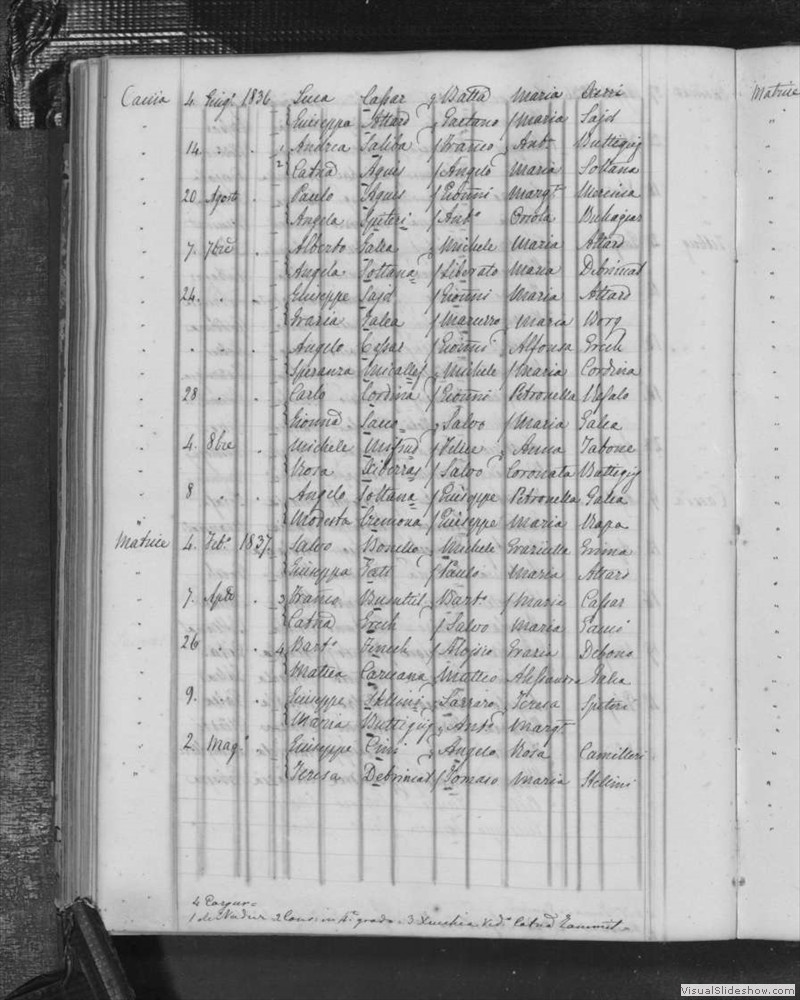 Caccia 4. Giug.º 1836 Luca Cassar q Mattia Maria Axiri
Giuseppa Attard Gaetano Maria Said
14. 1 Andrea Saliba Franco Antª Buttigig
2 Catnd Agius Angelo Maria Soltana
20 Agost Paulo Agius Gionni Margt
Angela Spiteri Antº Orsola Buhagiar
7. 7bre Alberto Galea Michele Maria Attard
Angela Soltana Liborato Maria Debrincat
24. Giuseppe Said Gionni Maria Attard
Grazia Galea Mazurro Maria Borg
Angelo Cassar Gionni Alfonsa Grech
Speranza Micallef Michele Maria Cordina
28 Carlo Cordina Gionni Petronella
Gionnd Salvo Maria Galea
4. 8bre Michele Mifsud Felice Anna Tabone
Rosa Ciberras Salvo Coronata Buttigig
8 Angelo Soltana Giuseppe Petronella Galea
Modesta Cremona Giuseppe Maria Rapa
Matrice 4. Febº 1837. Salvo Bonello Michele Graziella
Giuseppa Paulo Maria Attard
7. Aple 3 Franco Busuttil Bartº Maria Cassar
Catnd Grech Salvo Maria
26 4 Bartº Finech Aloisio Grazia Debono
Mattia Caruana Matteo Alessandra Galea
9. Giuseppe Stellini Saverio Teresa Spiteri
Maria Buttigig Antº Margt
2 Magº Giuseppe Cini Angelo Rosa Camilleri
Teresa Debrincat Tomaso Maria Stellini
4 Corpur=
1 de Nadur 2 Cons: in 4º grado. 3 Xeuchia Vedª Catnd Zammit
Matrice
VisualSlideshow.com